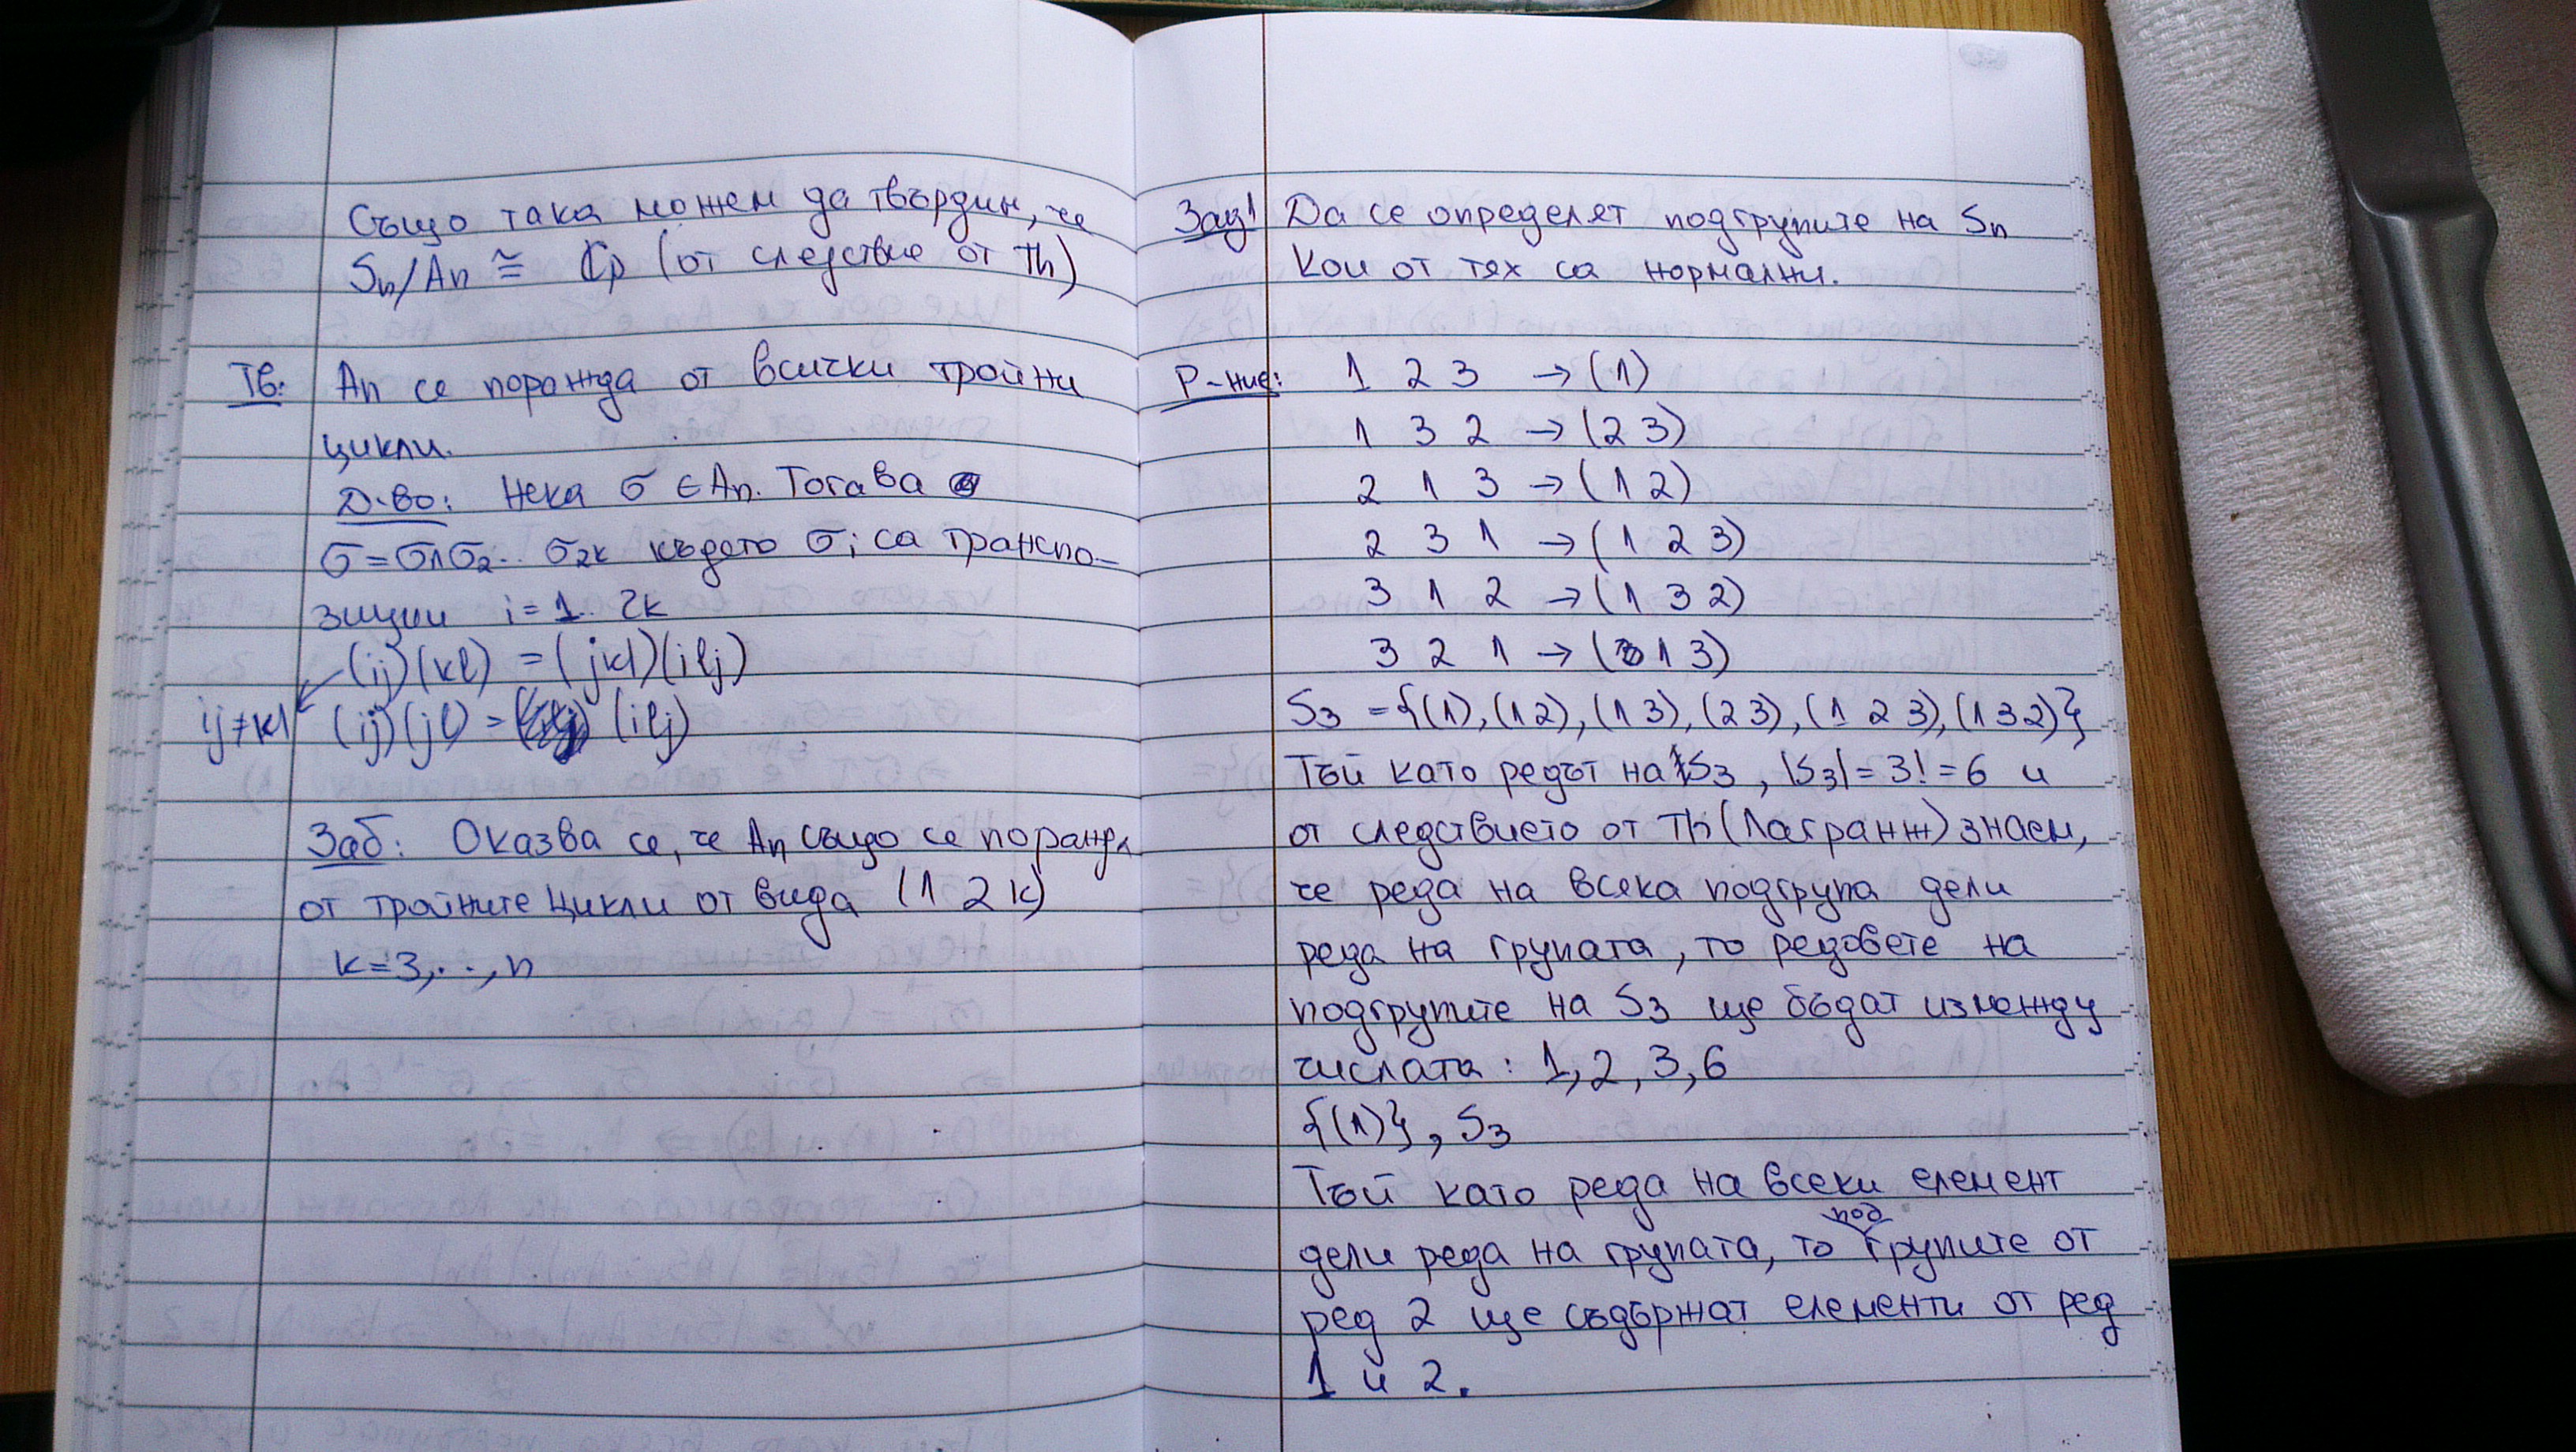 Също така можем да твърдим, че
Sn/An ≅ ℂp (от следствие от Th)
Тв: An се поражда от всички тройни
цикли.
Д-во: Нека σ ∈ An. Тогава
σ = σ1σ2.. σ2k където σi са транспо-
зиции i = 1.. 2k
(ij)(kl) = (jkl)(ilj)
ij≠kl (ij)(jl) = (ilj)
Заб: Оказва се, че An също се поражд
от тройните цикли от вида (1 2 k)
k=3,..,n
Зад1 Да се определят подгрупите на Sn
Кои от тях са нормални.
Р-ние: 1 2 3 → (1)
1 3 2 → (2 3)
2 1 3 → (1 2)
2 3 1 → (1 2 3)
3 1 2 → (1 3 2)
3 2 1 → (1 3)
S3 = {(1), (1 2), (1 3), (2 3), (1 2 3), (1 3 2)}
Тъй като редът на S3, |S3| = 3! = 6 и
от следствието от Th (Лагранж) знаем,
че реда на всяка подгрупа дели
реда на групата, то редовете на
подгрупите на S3 ще бъдат измежду
числата: 1, 2, 3, 6
{(1)}, S3
Тъй като реда на всеки елемент
дели реда на групата, то подгрупите от
ред 2 ще съдържат елементи от ред
1 и 2.